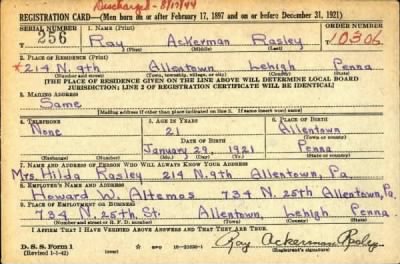 Discharged - 8/17/44
REGISTRATION CARD—(Men born on or after February 17, 1897 and on or before December 31, 1921)
SERIAL NUMBER 1. NAME (Print) ORDER NUMBER
256 Ray Ackerman Rasley 10306
(First) (Middle) (Last)
2. PLACE OF RESIDENCE (Print)
* 214 N. 9th Allentown Lehigh Penna
(Number and street) (Town, township, village, or city) (County) (State)
[THE PLACE OF RESIDENCE GIVEN ON THE LINE ABOVE WILL DETERMINE LOCAL BOARD
JURISDICTION; LINE 2 OF REGISTRATION CERTIFICATE WILL BE IDENTICAL]
3. MAILING ADDRESS
Same
[Mailing address if other than place indicated on line 2. If same insert word same]
4. TELEPHONE 5. AGE IN YEARS 6. PLACE OF BIRTH
None 21 Allentown
DATE OF BIRTH (Town or county)
January 29, 1921 Penna
(Exchange) (Number) (Mo.) (Day) (Yr.) (State or country)
7. NAME AND ADDRESS OF PERSON WHO WILL ALWAYS KNOW YOUR ADDRESS
Mrs. Hilda Rasley 214 N. 9th Allentown, Pa.
8. EMPLOYER'S NAME AND ADDRESS
Howard W. Altemos 734 N. 25th Allentown, Pa.
9. PLACE OF EMPLOYMENT OR BUSINESS
734 N. 25th St. Allentown, Lehigh Penna
(Number and street or R. F. D. number) (Town) (County) (State)
I AFFIRM THAT I HAVE VERIFIED ABOVE ANSWERS AND THAT THEY ARE TRUE.
D. S. S. Form 1
(Revised 1-1-42) GPO Ray Ackerman Rasley